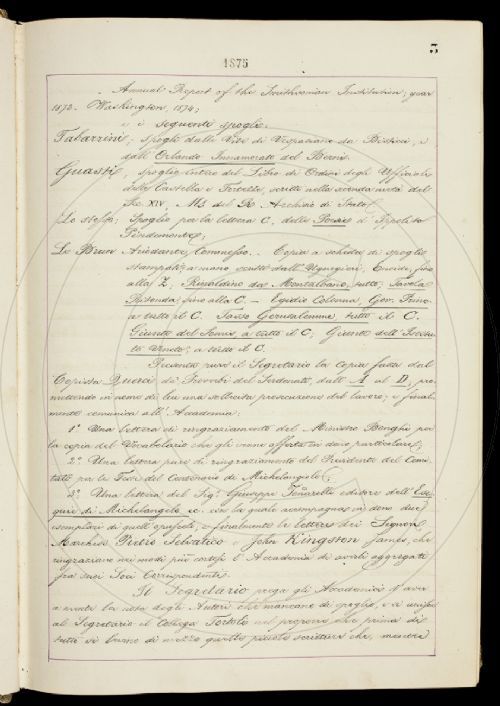 3
1875
Annual Report of the Smithsonian Institution, year
1873. Washington 1874;
e i seguenti spogli.
Tabarrini; Spogli dalle Vite di Vespasiano da Bisticci, e
dall'Orlando Innamorato del Berni.
Guasti, spoglio intero del Libro di Ordini degli Ufficiali
delle Castella e Fortezze, scritto nella seconda metà del
Sec. XIV, Ms. del R. Archivio di Stato;
Lo stesso; Spoglio per la lettera C, delle Poesie d'Ippolito
Pindemonte;
Le Brun Aiutante, Commesso. Copia a schede di spogli
stampati e a mano
alla Z; Rinaldino da Montalbano, tutto; Tavola
Ritonda, fino alla C – Egidio Colonna, Gov. Princ.
a tutto il C. Tasso Gerusalemme, tutto il C.
Giunte del a tutto il C; Giunte dell'
Veneto; a tutto il C.
Presenta pure il Segretario la copia fatta dal
Copista Querci dei Proverbi del Serdonati, dall'A al D, pro-
mettendo in nome di lui una sollecita prosecuzione del lavoro; e final-
mente comunica all'Accademia:
1.° Una lettera di ringraziamento del Ministro Bonghi per
la copia del Vocabolario che gli venne offerta in dono particolare;
2.° Una lettera pure di ringraziamento del Presidente del Comi-
tato per le Feste del Centenario di Michelangelo;
3.° Una lettera del Sig.r Giuseppe editore dell'Ese-
quie di Michelangelo ec. con la quale accompagna in dono due
esemplari di quell'opuscolo; e finalmente le lettere dei Signori
Marchese Pietro Selvatico e John Kingston James, che
ringraziano nei modi più cortesi l'Accademia di averli aggregati
fra suoi Soci Corrispondenti.
Il Segretario prega gli Accademici d'aver
a mente la nota degli Autori che mancano di spoglio, e si unisce
al Segretario il Collega Tortoli nel proporre che prima di
tutti si prenda di mezzo quelle piccole scritture che, mentre